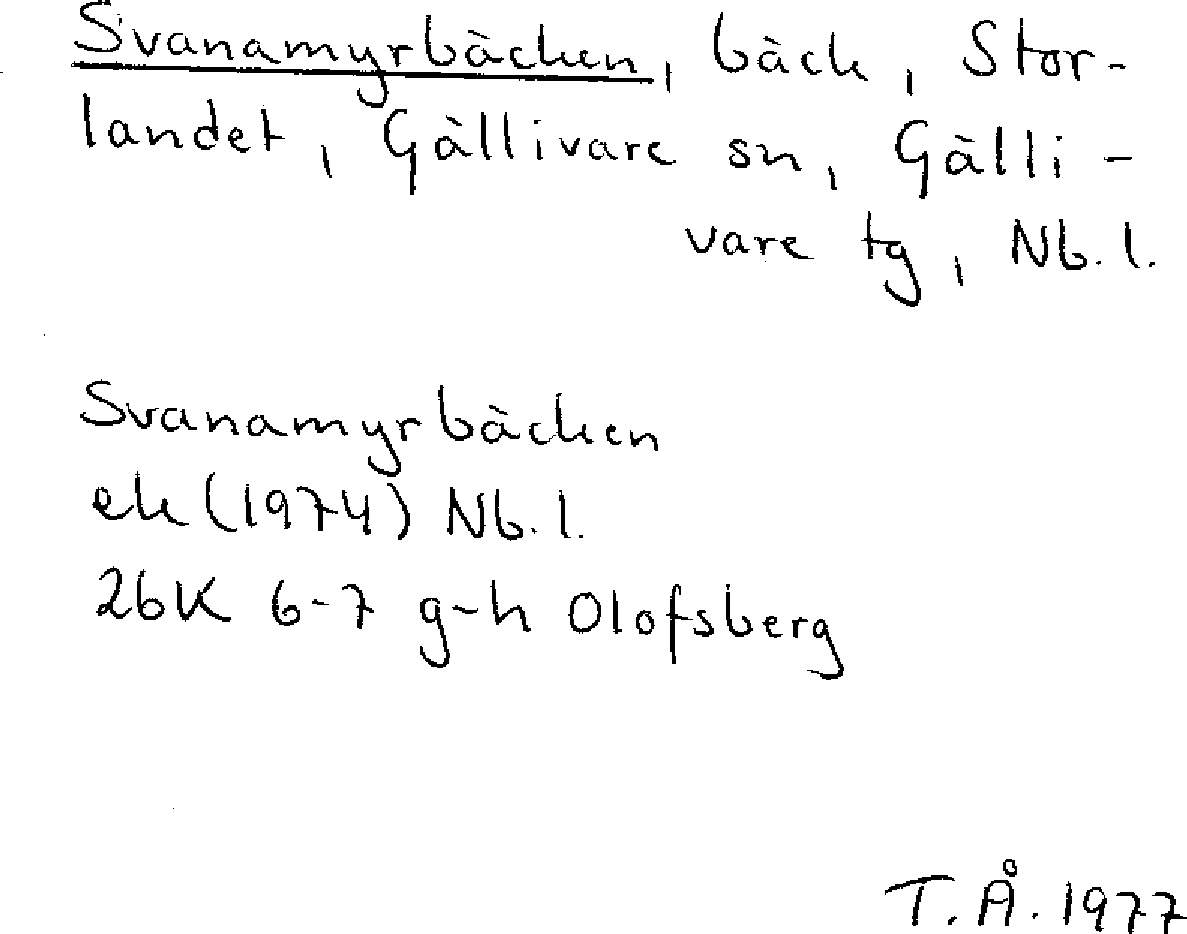 Svanamyrbäcken, bäck, Stor-
landet, Gällivare sn, Gälli-
vare tg, Nb. l.
Svanamyrbäcken
ek (1974) Nb. l.
26K 6-7 g-h Olofsberg
T. Å. 1977